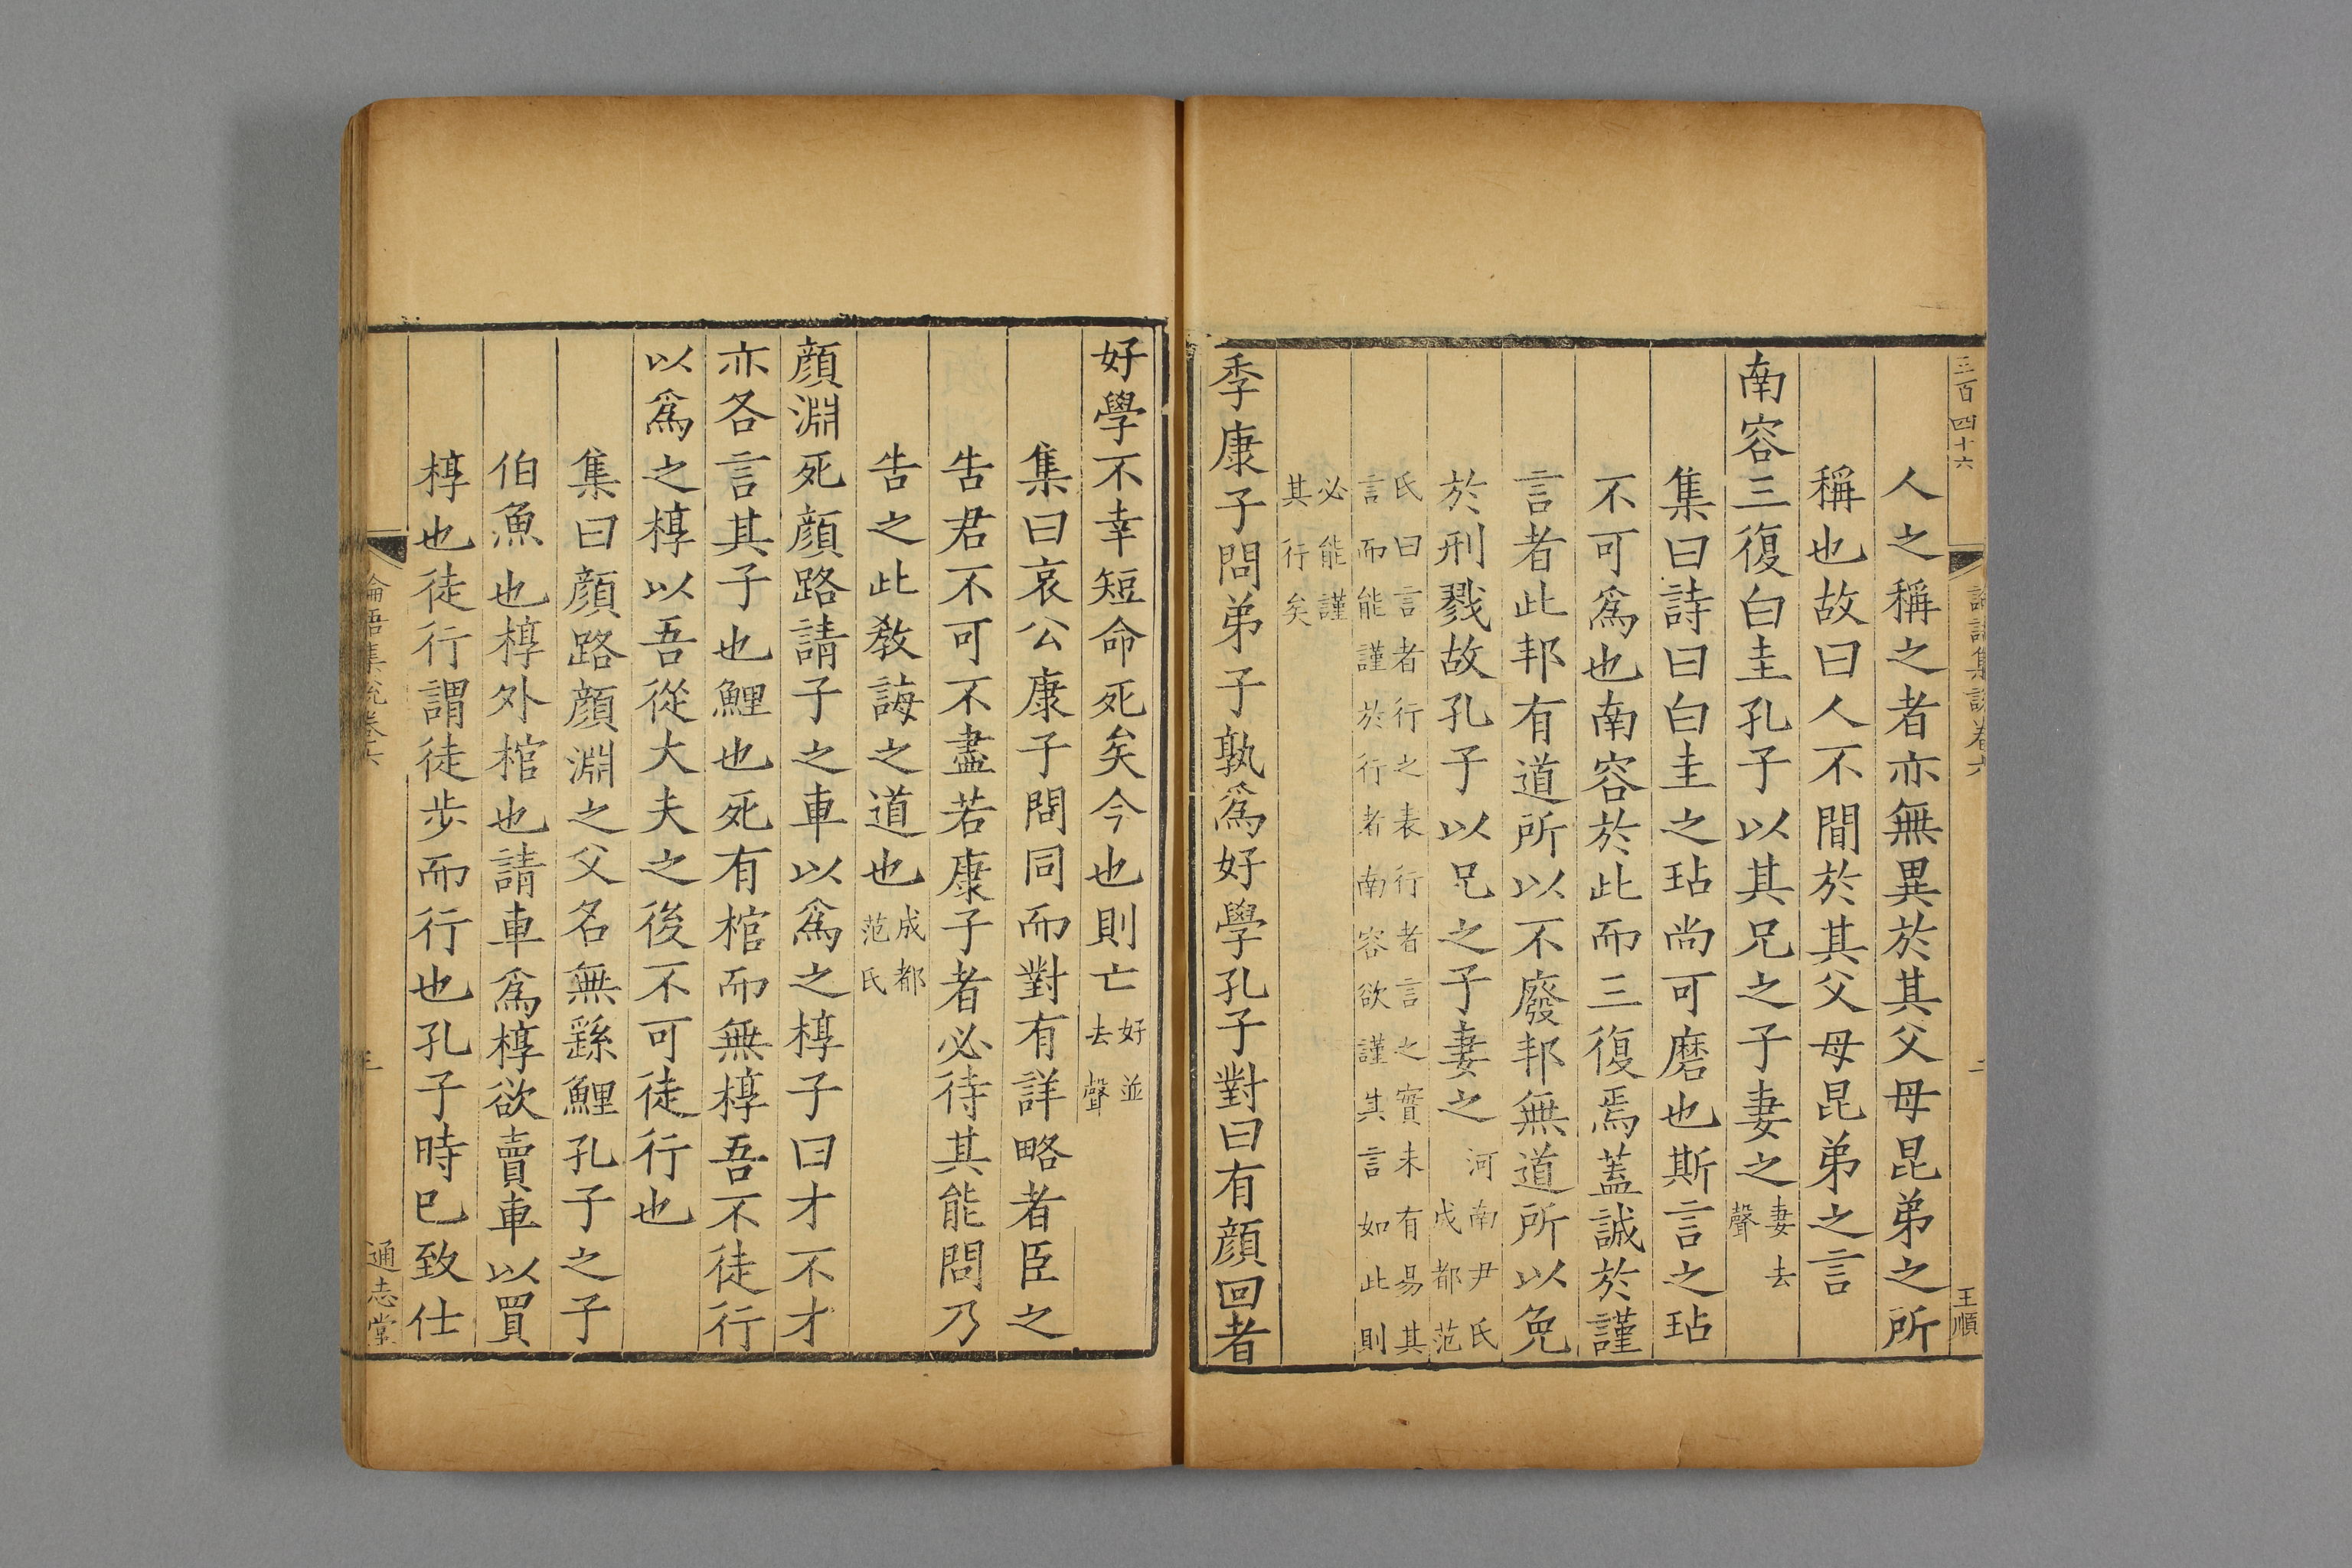 三百四十六
論語集說卷六
二
王順
人之稱之者亦無異於其父母昆弟之所
稱也故曰人不間於其父母昆弟之言
南容三復白圭孔子以其兄之子妻之妻去聲
集曰詩曰白圭之玷尚可磨也斯言之玷
不可爲也南容於此而三復焉蓋誠於謹
言者此邦有道所以不廢邦無道所以免
於刑戮故孔子以兄之子妻之河南尹氏成都范
氏曰言者行之表行者言之實未有易其
言而能謹於行者南容欲謹其言如此則
必能謹
其行矣
季康子問弟子孰爲好學孔子對曰有顔回者
好學不幸短命死矣今也則亡好並去聲
集曰哀公康子問同而對有詳略者臣之
告君不可不盡若康子者必待其能問乃
告之此敎誨之道也成都范氏
顔淵死顔路請子之車以爲之椁子曰才不才
亦各言其子也鯉也死有棺而無椁吾不徒行
以爲之椁以吾從大夫之後不可徒行也
集曰顔路顔淵之父名無繇鯉孔子之子
伯魚也椁外棺也請車爲椁欲賣車以買
椁也徒行謂徒步而行也孔子時巳致仕
論語集說卷六
三
通志堂